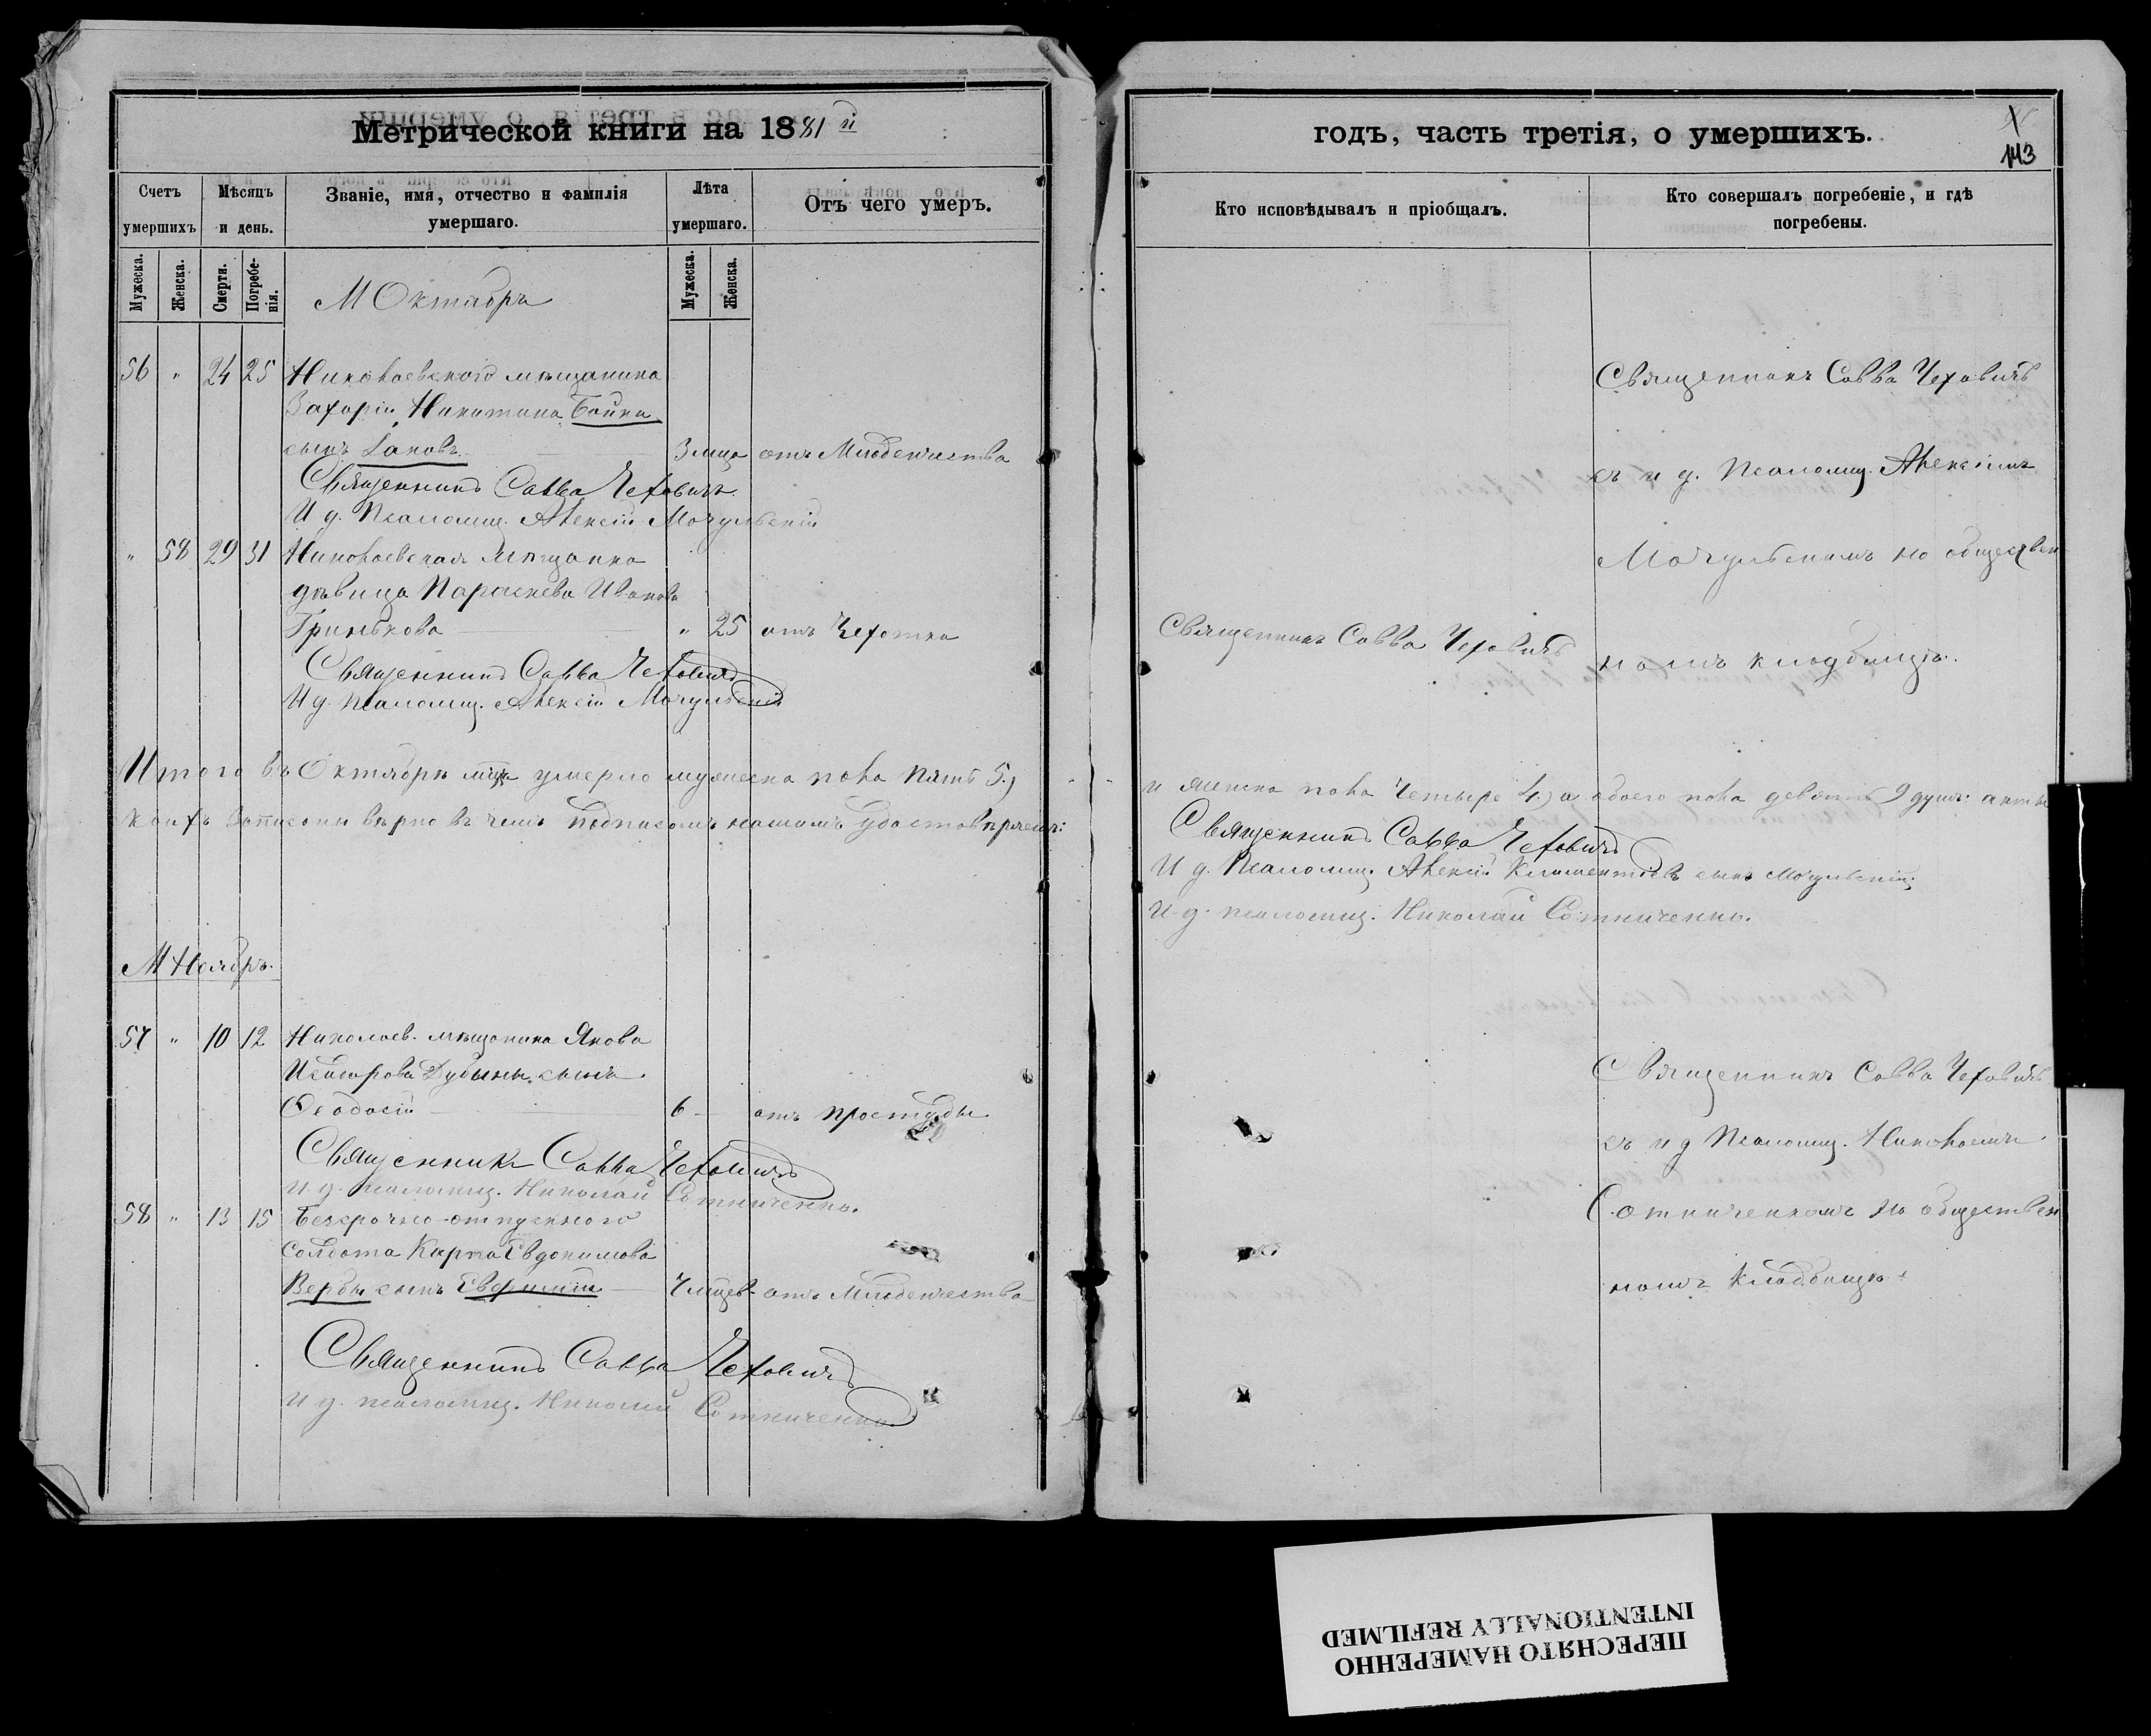 Метрической книги на 1881й
Счетъ умершихъ
Мѣсяцъ и день.
Званіе, имя, отчество и фамилія умершаго.
Лѣта умершаго.
Отъ чего умеръ.
Мужеска.
Женска.
Смерти.
Погребенія.
Мужеска.
Женска.
М Октябрь
56 " 24 25 Николаевского мѣщанина
Захарія Никитина Бойка
сынъ Іаковъ 3 мца отъ Младенчества
Священникъ Савва Чеховичъ
И д. Псаломщ. Алексій Мочульскій
" 58 29 31 Николаевская мѣщанка
дѣвица Параскева Иванова
Гринькова " 25 отъ Чехотки
Священникъ Савва Чеховичъ
И д. Псаломщ. Алексій Мочульскій
Итого въ Октябрѣ мцѣ умерло мужеска пола пять 5.)
коихъ записаны вѣрно въ чемъ подписомъ нашимъ удостовѣряемъ:
М Ноябрь.
57 " 10 12 Николаев. мѣщанина Якова
Дубины сынъ
Ѳеодосій 6 отъ простуды
Священникъ Савва Чеховичъ
И д. псаломщ. Николай Сотниченко.
58 " 13 15 Безсрочно-отпускного
солдата Карпа Евдокимова
Вербы сынъ Евфимій отъ Младенчества
Священникъ Савва Чеховичъ
И д. псаломщ. Николай Сотниченко
годъ, часть третія, о умершихъ.
143
Кто исповѣдывалъ и пріобщалъ.
Кто совершалъ погребеніе, и гдѣ погребены.
Священникъ Савва Чеховичъ
съ и д. Псаломщ. Алексіимъ
Мочульскимъ на обществен
Священникъ Савва Чеховичъ
номъ кладбищѣ.
и женска пола четыре 4.) а обоего пола девять 9 душъ: акты
Священникъ Савва Чеховичъ
И д. Псаломщ. Алексій Климентовъ сынъ Мочульскій
И д. псаломщ. Николай Сотниченко.
Священникъ Савва Чеховичъ
съ и д Псаломщ. Николаемъ
Сотниченкомъ на обществен
номъ кладбищѣ.
ПЕРЕСНЯТО НАМЕРЕННО
INTENTIONALLY REFILMED